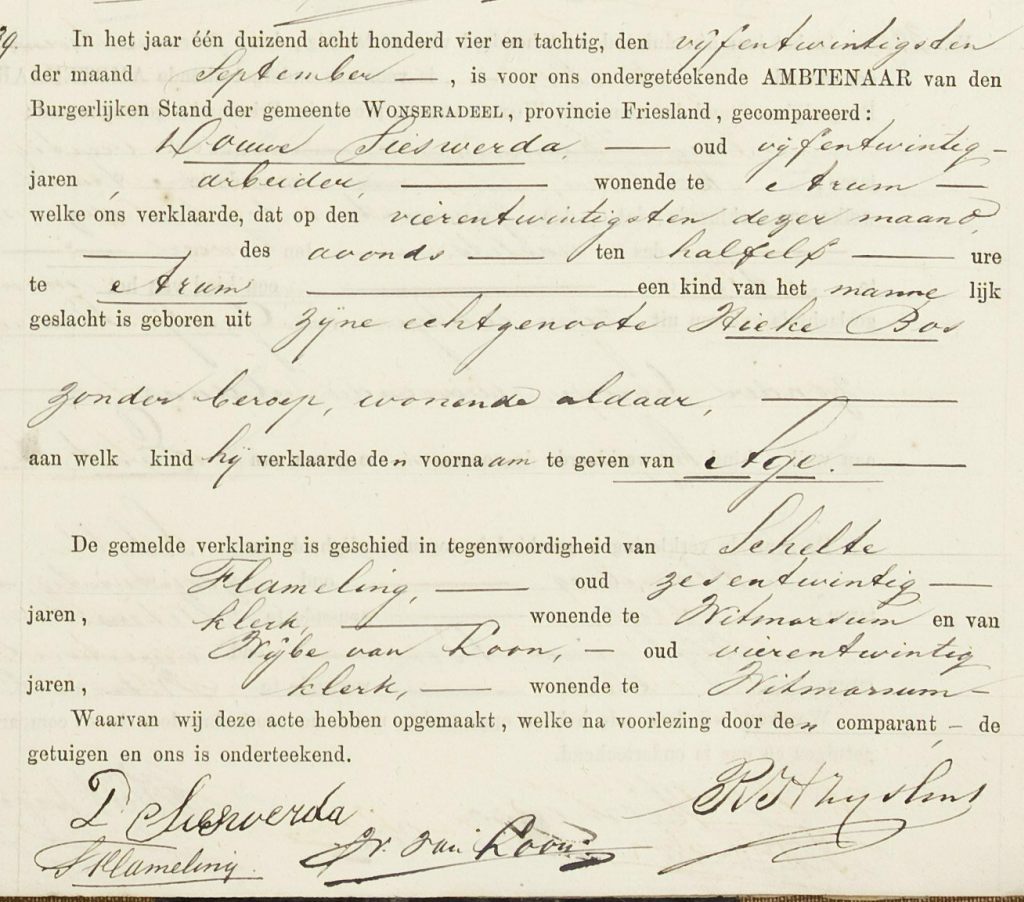 39.
In het jaar één duizend acht honderd vier en tachtig, den vijfentwintigsten
der maand September —, is voor ons ondergeteekende AMBTENAAR van den
Burgerlijken Stand der gemeente WONSERADEEL, provincie Friesland, gecompareerd:
Douwe Sieswerda, — oud vijfentwintig —
jaren arbeider, — wonende te Arum —
welke ons verklaarde, dat op den vierentwintigsten dezer maand,
— des avonds — ten halfelf — ure
te Arum — een kind van het mannelijk
geslacht is geboren uit zijne echtgenoote Hieke Bos
zonder beroep, wonende aldaar, —
aan welk kind hij verklaarde den voornaam te geven van Age. —
De gemelde verklaring is geschied in tegenwoordigheid van Schelte
Flameling, — oud zesentwintig —
jaren, klerk, — wonende te Witmarsum en van
Wijbe van Loon, — oud vierentwintig
jaren, klerk, — wonende te Witmarsum —
Waarvan wij deze acte hebben opgemaakt, welke na voorlezing door den comparant, — de
getuigen en ons is onderteekend.
D Sieswerda
S Flameling. W. van Loon